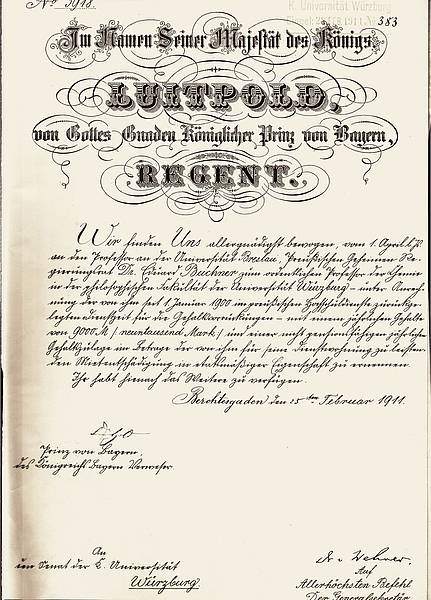 No 3918.
K. Universität Würzburg
383
Im Namen Seiner Majestät des Königs.
LUITPOLD,
von Gottes Gnaden Königlicher Prinz von Bayern,
REGENT.
Wir finden Uns allergnädigst bewogen, vom 1. April l. Js.
an den Professor an der Universität Breslau, Preußischen Geheimen Re-
gierungsrat Dr. Eduard Buchner zum ordentlichen Professor der Chemie
in der philosophischen Fakultät der Universität Würzburg – unter Anrech-
nung der von ihm seit 1. Januar 1900 im preußischen Hochschuldienste zurückge-
legten Dienstzeit für die Gehaltsvorrückungen – mit einem jährlichen Gehalte
von 9000 M. / neuntausend Mark / und einer nicht pensionsfähigen jährlichen
Gehaltszulage im Betrage der von ihm für seine Dienstwohnung zu leisten-
den Mietentschädigung in etatsmäßiger Eigenschaft zu ernennen.
Ihr habt hienach das Weitere zu verfügen.
Berchtesgaden den 15ten Februar 1911.
Prinz von Bayern,
des Königreichs Bayern Verweser.
An
den Senat der K. Universität
Würzburg.
Dr. v. Wehner.
Auf
Allerhöchsten Befehl
Der Generalsekretär